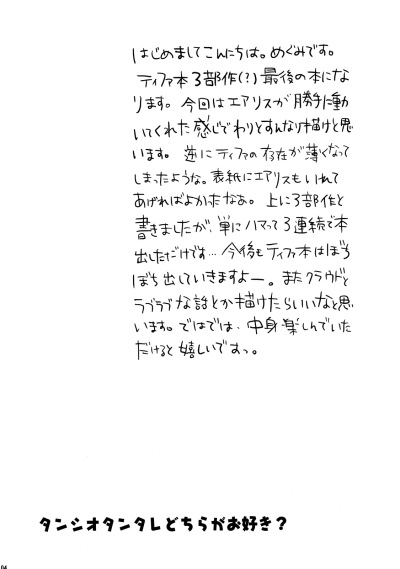 はじめましてこんにちは。めぐみです。
ティファ本3部作(?)最後の本にな
ります。今回はエアリスが勝手に動
いてくれた感じでわりとすんなり描けたと思
います。逆にティファの存在が薄くなって
しまったような。表紙にエアリスもいれて
あげればよかったなぁ。上に3部作と
書きましたが、単にハマって3連続で本
出しただけです…今後もティファ本はぼち
ぼち出していきますよー。またクラウドと
ラブラブな話とか描けたらいいなと思
います。ではでは、中身楽しんでいた
だけると嬉しいですっ。
タンシオタンタレどちらがお好き?
04